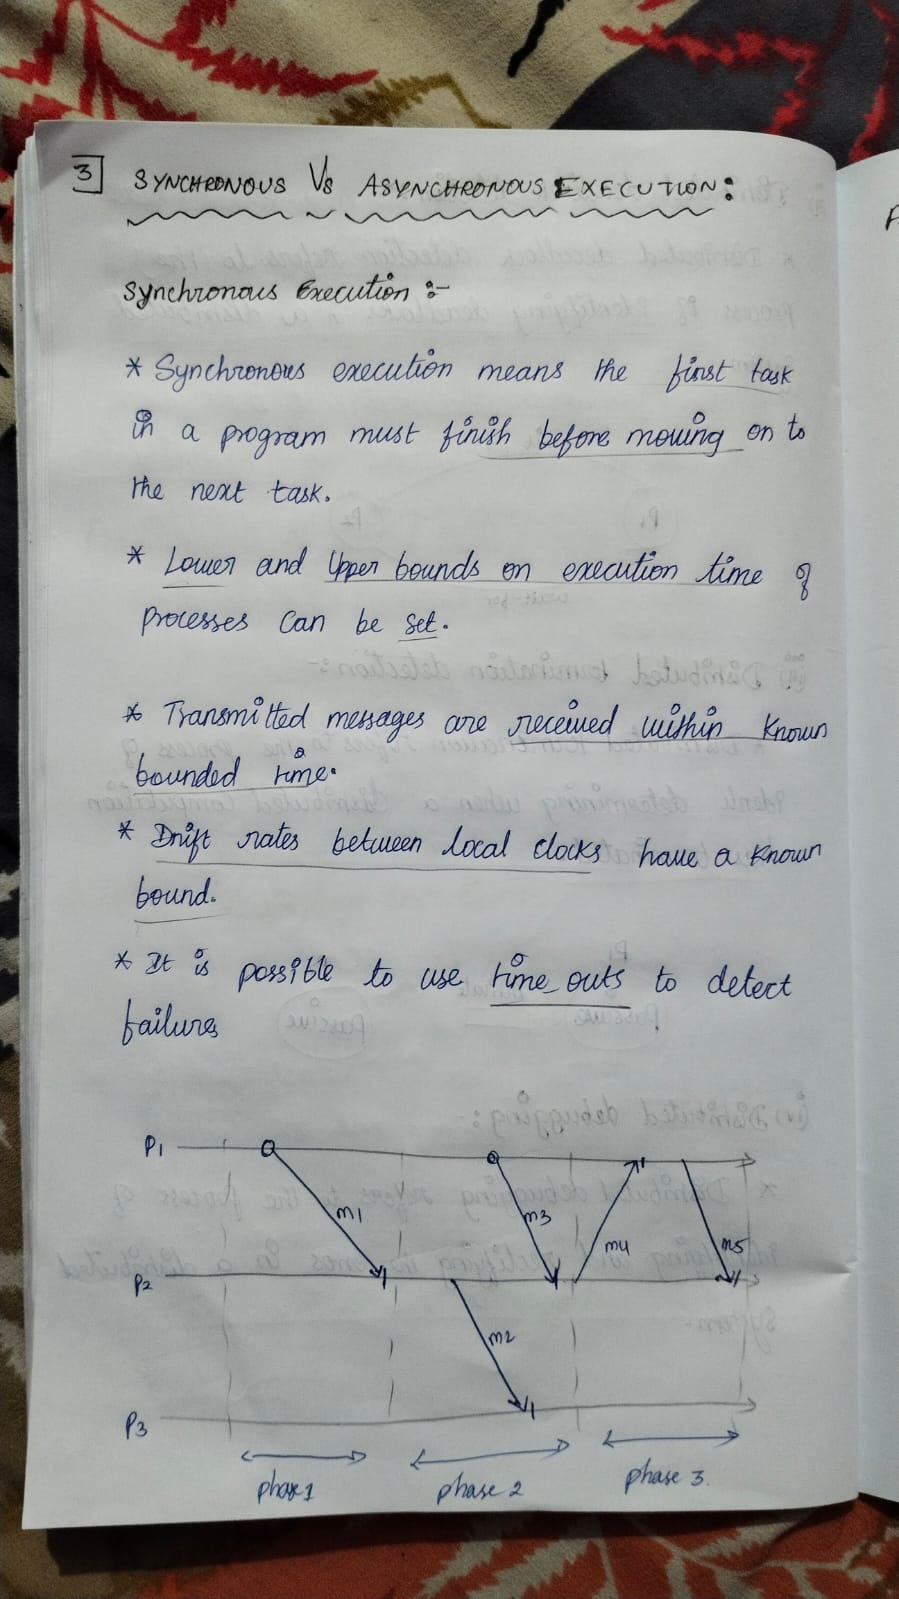 3 SYNCHRONOUS Vs ASYNCHRONOUS EXECUTION:
Synchronous Execution :-
* Synchronous execution means the first task
in a program must finish before moving on to
the next task.
* Lower and Upper bounds on execution time of
processes can be set.
* Transmitted messages are received within known
bounded time.
* Drift rates between local clocks have a known
bound.
* It is possible to use time outs to detect
failures
P1
m1
m3
m4
m5
P2
m2
P3
phase 1
phase 2
phase 3.